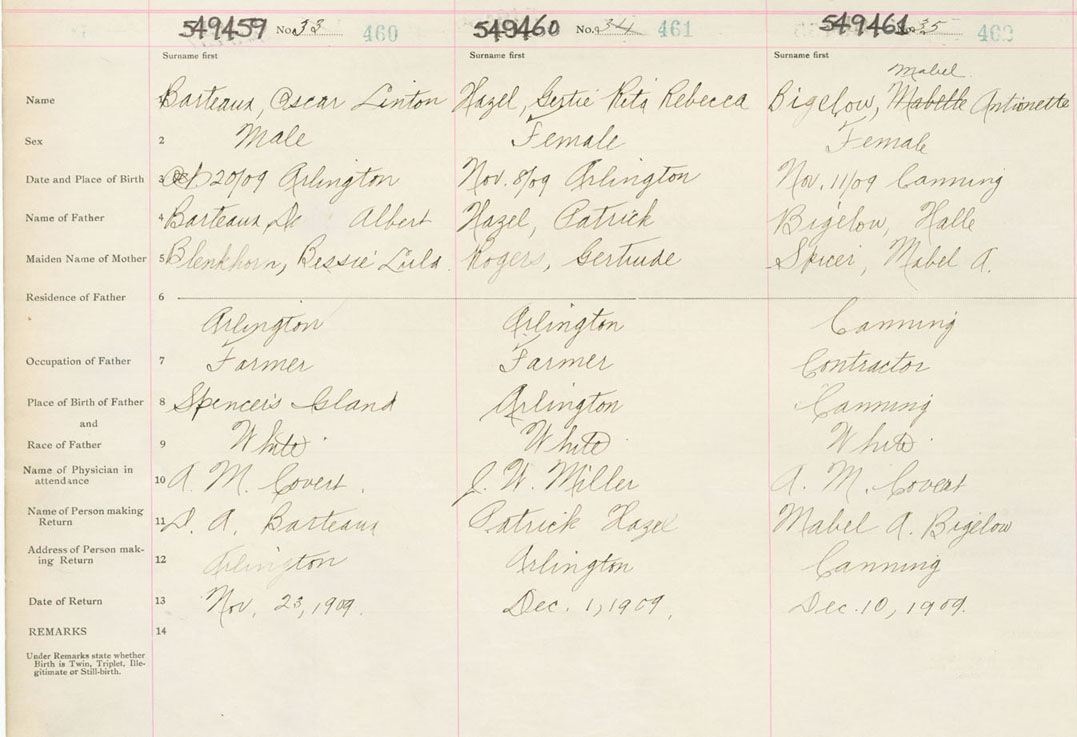 549459 No. 33 460 549460 No. 34 461 549461 No. 35 462
Surname first Surname first Surname first
Mabel
Name 1 Barteaux, Oscar Linton Hazel, Gertie Rita Rebecca Bigelow, Mabelle Antionette
Sex 2 Male Female Female
Date and Place of Birth 3 Oct 20/09 Arlington Nov. 8/09 Arlington Nov. 11/09 Canning
Name of Father 4 Barteaux, De Albert Hazel, Patrick Bigelow, Halle
Maiden Name of Mother 5 Blenkhorn, Bessie Lula. Rogers, Gertrude Spicer, Mabel A.
Residence of Father 6
Arlington Arlington Canning
Occupation of Father 7 Farmer Farmer Contractor
Place of Birth of Father 8 Spencer's Island Arlington Canning
and
Race of Father 9 White White White
Name of Physician in
attendance 10 A. M. Covert. J. W. Miller A. M. Covert
Name of Person making
Return 11 D. A. Barteaux Patrick Hazel Mabel A. Bigelow
Address of Person mak-
ing Return 12 Arlington Arlington Canning
Date of Return 13 Nov. 23, 1909. Dec. 1, 1909. Dec. 10, 1909.
REMARKS 14
Under Remarks state whether
Birth is Twin, Triplet, Ille-
gitimate or Still-birth.